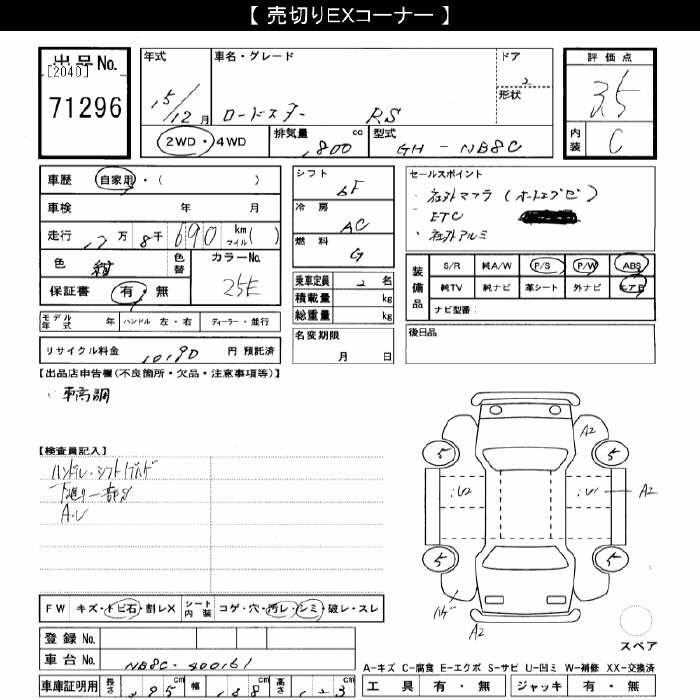 【 売切りEXコーナー 】
出品 No.
[2040]
71296
年式
15/12 月
車名・グレード
ロードスター RS
ドア
2
形状
2WD・4WD
排気量 1,800 cc
型式 GH - NB8C
評価点
3.5
内装 C
車歴 自家用・( )
車検 年 月
走行 17万 8千 690 km マイル( )
色 紺
色替
カラーNo. 25E
保証書 有・無
モデル年式 年 ハンドル 左・右 ディーラー・並行
リサイクル料金 10190 円 預託済
シフト 6F
冷房 AC
燃料 G
乗車定員 2 名
積載量 kg
総重量 kg
名変期限 月 日
セールスポイント
・社外マフラ
・ETC
・社外アルミ
装備品
S/R 純A/W P/S P/W ABS
純TV 純ナビ 革シート 外ナビ エアB
ナビ型番:
後日品
【出品店申告欄(不良箇所・欠品・注意事項等)】
・車高調
【検査員記入】
ハンドル・シフト
A-U
FW キズ・トビ石・割レX シート内装 コゲ・穴・汚レ・シミ・破レ・スレ
登録 No.
車台 No. NB8C-400161
車庫証明用 長さ 395 cm 幅 168 cm 高さ 123 cm
A2
5
5
:U2
:U1
A2
5
5
A2
スペア
A-キズ C-腐食 E-エクボ S-サビ U-凹ミ W-補修 XX-交換済
工具 有・無 ジャッキ 有・無